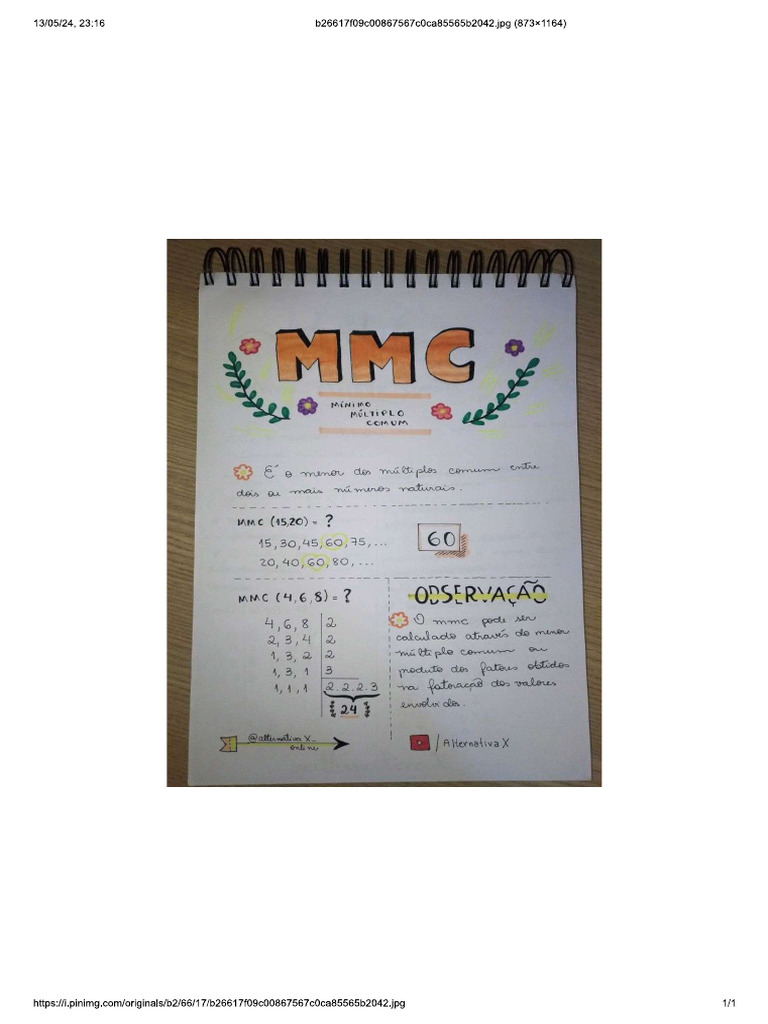 13/05/24, 23:16
b26617f09c00867567c0ca85565b2042.jpg (873×1164)
MMC
MÍNIMO
MÚLTIPLO
COMUM
É o menor dos múltiplos comum entre
dois ou mais números naturais.
MMC (15,20) = ?
15, 30, 45, 60, 75, ...
20, 40, 60, 80, ...
60
MMC (4, 6, 8) = ?
4, 6, 8 | 2
2, 3, 4 | 2
1, 3, 2 | 2
1, 3, 1 | 3
1, 1, 1 | 2.2.2.3
24
OBSERVAÇÃO
O mmc pode ser
calculado através do menor
múltiplo comum ou
produto dos fatores obtidos
na fatoração dos valores
envolvidos.
@alternativa X_
online
/Alternativa X
https://i.pinimg.com/originals/b2/66/17/b26617f09c00867567c0ca85565b2042.jpg
1/1